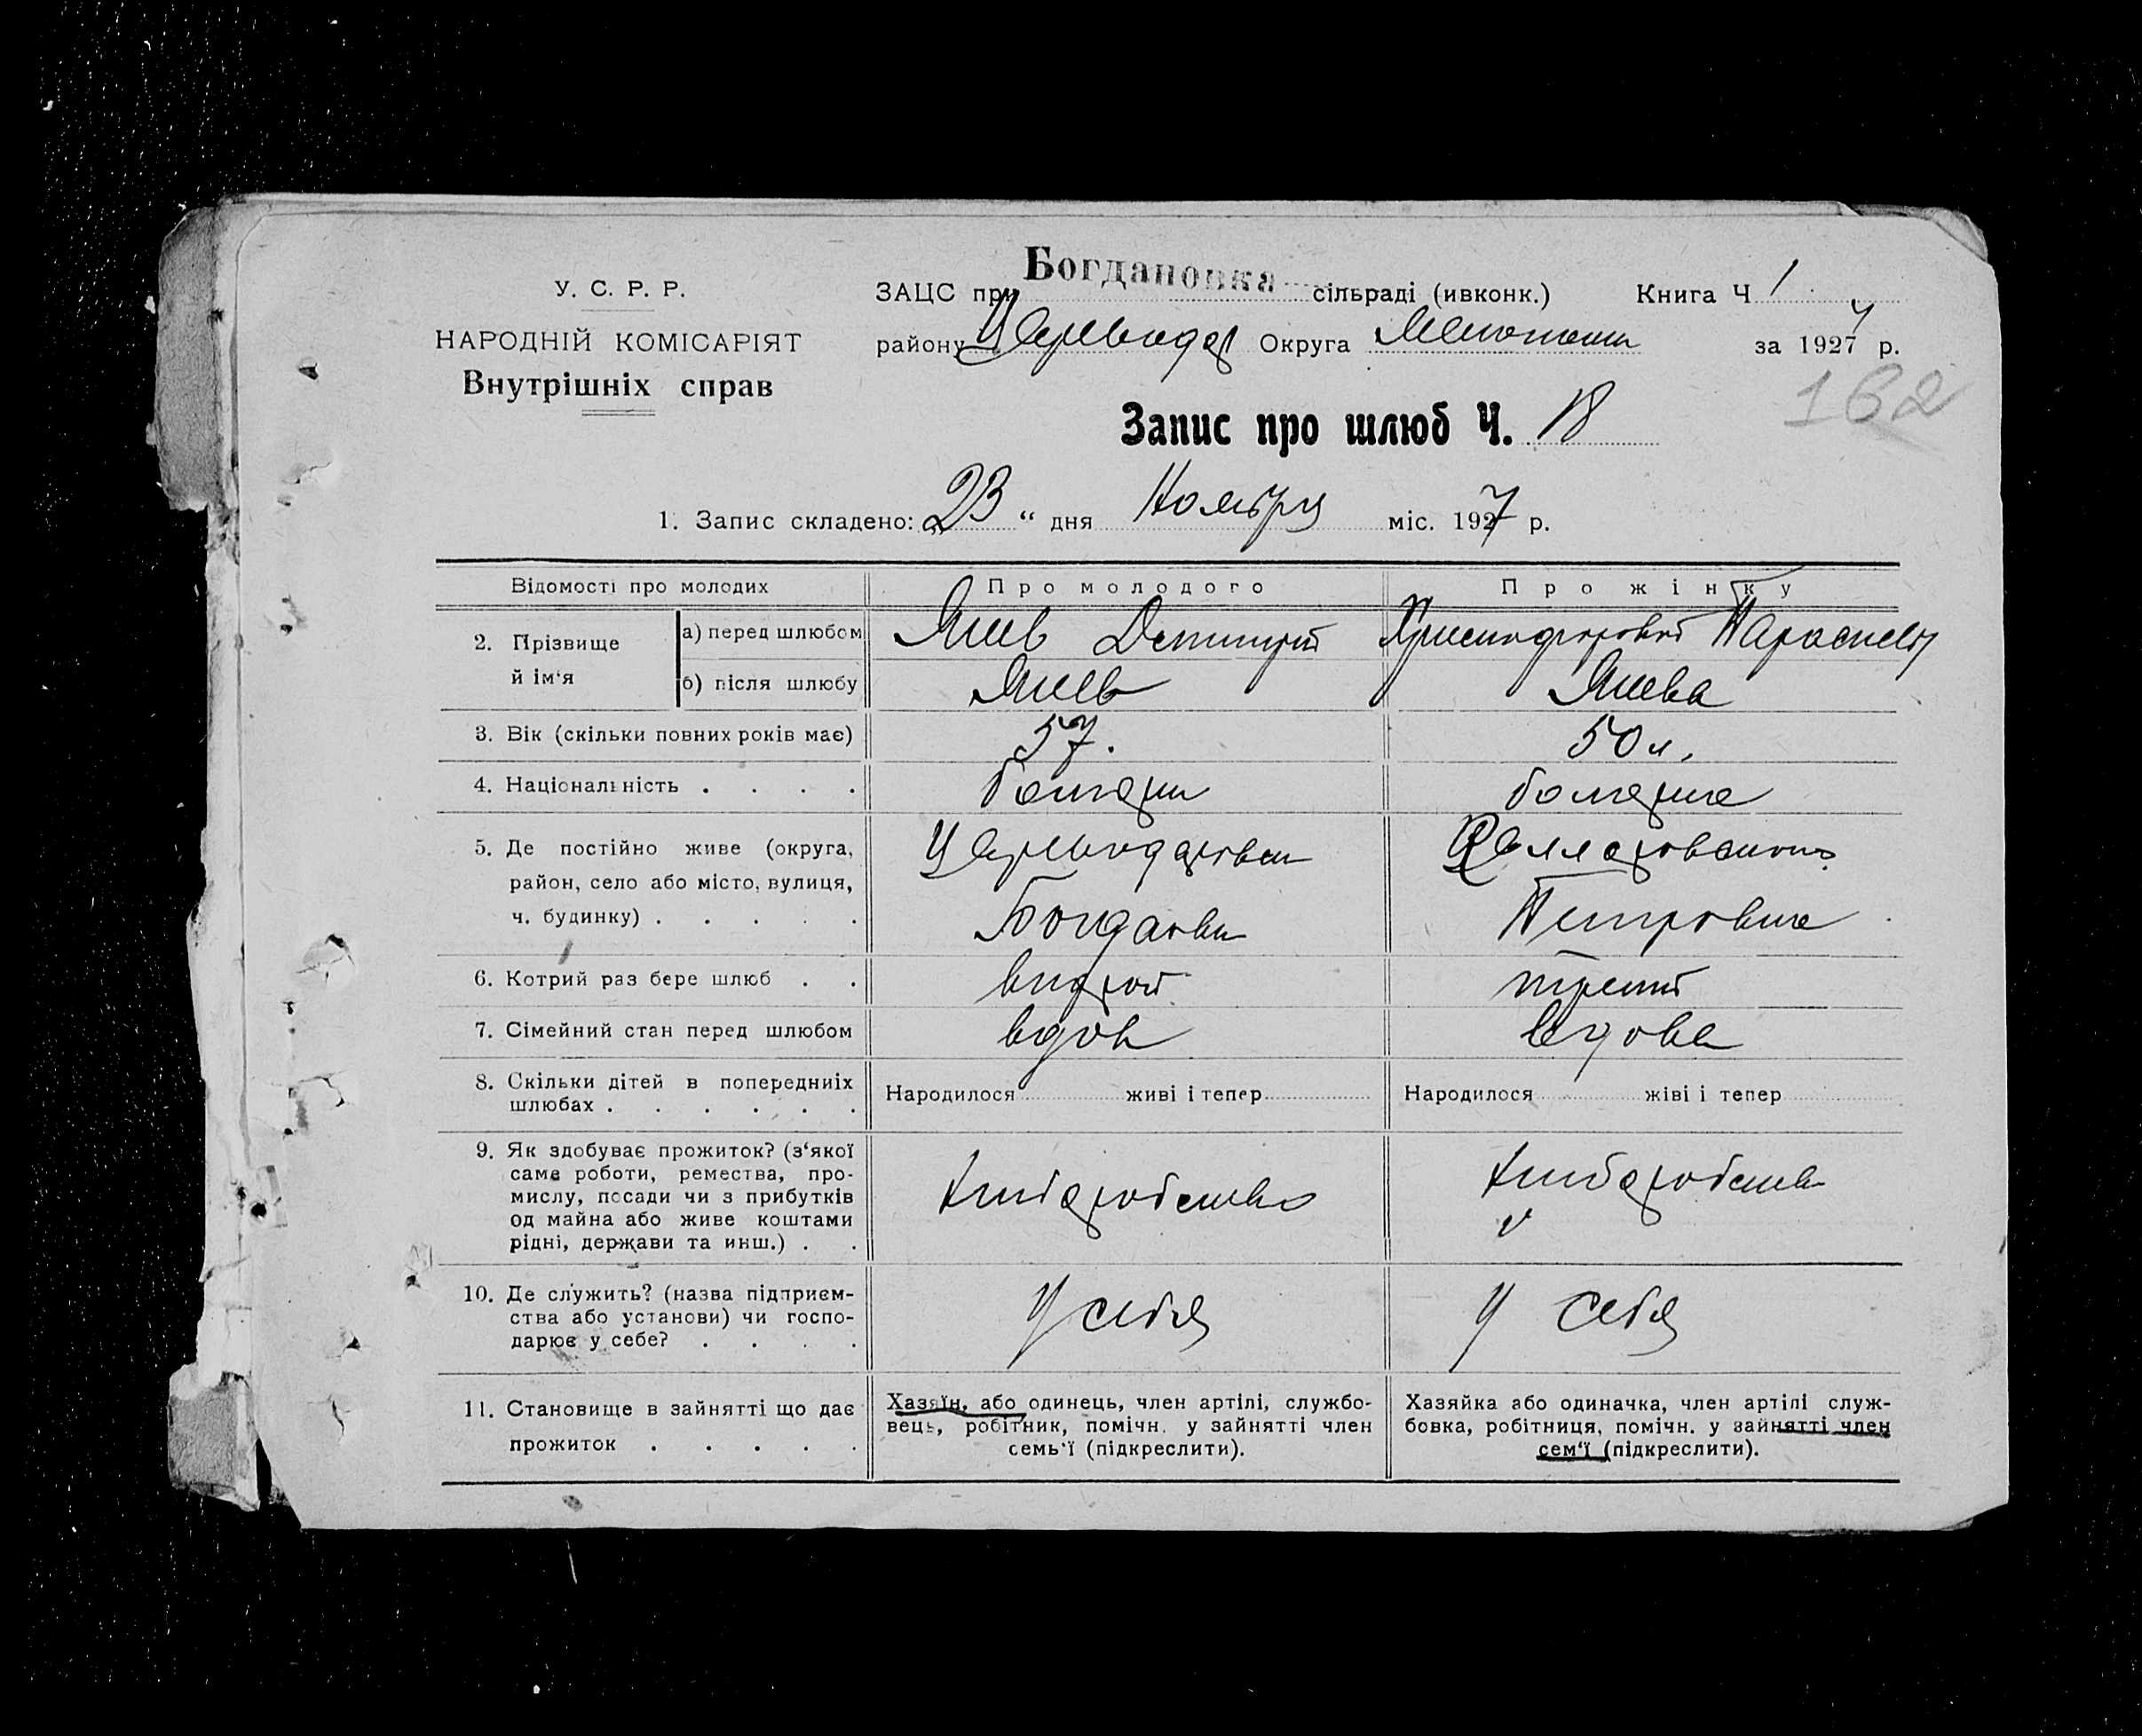 Богдановка
У. С. Р. Р.
ЗАЦС при сільраді (ивконк.) Книга Ч 1
НАРОДНІЙ КОМІСАРІЯТ
району Округа за 1927 р.
Внутрішніх справ
162
Запис про шлюб Ч. 18
1. Запис складено: „23“ дня Ноября міс. 1927 р.
Відомості про молодих Про молодого Про жінку
2. Прізвище й ім‘я
а) перед шлюбом Яиев Дмитрий Христофорова
б) після шлюбу Яиев Яиева
3. Вік (скільки повних років має) 57. 50 л.
4. Національність . . . . болгарин болгарка
5. Де постійно живе (округа,
район, село або місто, вулиця,
ч. будинку) . . . . .
Богдановка
Петровка
6. Котрий раз бере шлюб . . второй третий
7. Сімейний стан перед шлюбом вдов вдова
8. Скільки дітей в попередниіх
шлюбах . . . . . .
Народилося живі і тепер
Народилося жіві і тепер
9. Як здобуває прожиток? (з‘якої
саме роботи, ремества, про-
мислу, посади чи з прибутків
од майна або живе коштами
рідні, держави та инш.) . .
хлибаробство
хлибаробство
10. Де служить? (назва підприєм-
ства або установи) чи госпо-
дарює у себе? . . . .
У себя
У себя
11. Становище в зайнятті що дає
прожиток . . . . .
Хазяїн, або одинець, член артілі, службо-
вець, робітник, помічн. у зайнятті член
семь‘ї (підкреслити).
Хазяйка або одиначка, член артілі служ-
бовка, робітниця, помічн. у зайнятті член
сем‘ї (підкреслити).